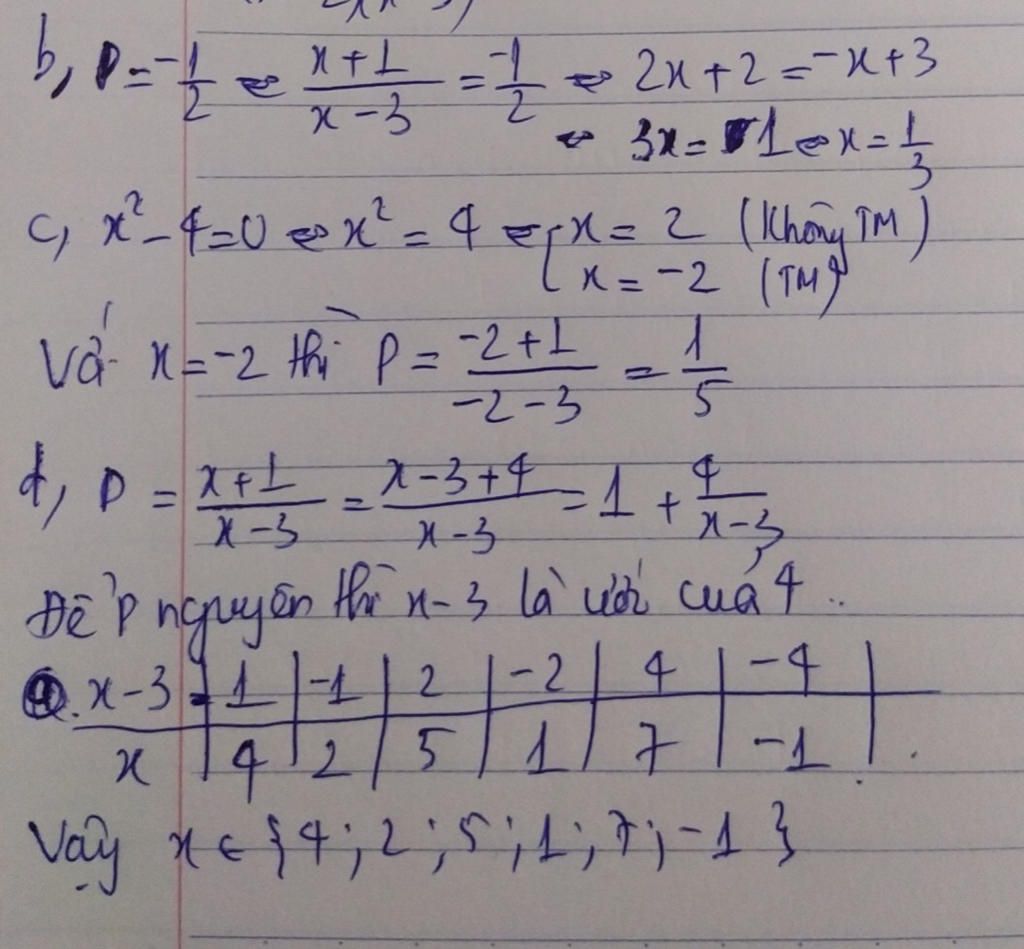 b, P = -1/2 ⇔ (x+1)/(x-3) = -1/2 ⇔ 2x+2 = -x+3
⇔ 3x = 1 ⇔ x = 1/3
c, x² - 4 = 0 ⇔ x² = 4 ⇔ [ x = 2 (Không TM)
x = -2 (TM)
Với x = -2 thì P = (-2+1)/(-2-3) = 1/5
d, P = (x+1)/(x-3) = (x-3+4)/(x-3) = 1 + 4/(x-3)
Để P nguyên thì x-3 là ước của 4 ..
x-3 | 1 | -1 | 2 | -2 | 4 | -4 |
x | 4 | 2 | 5 | 1 | 7 | -1 | .
Vậy x ∈ {4; 2; 5; 1; 7; -1}